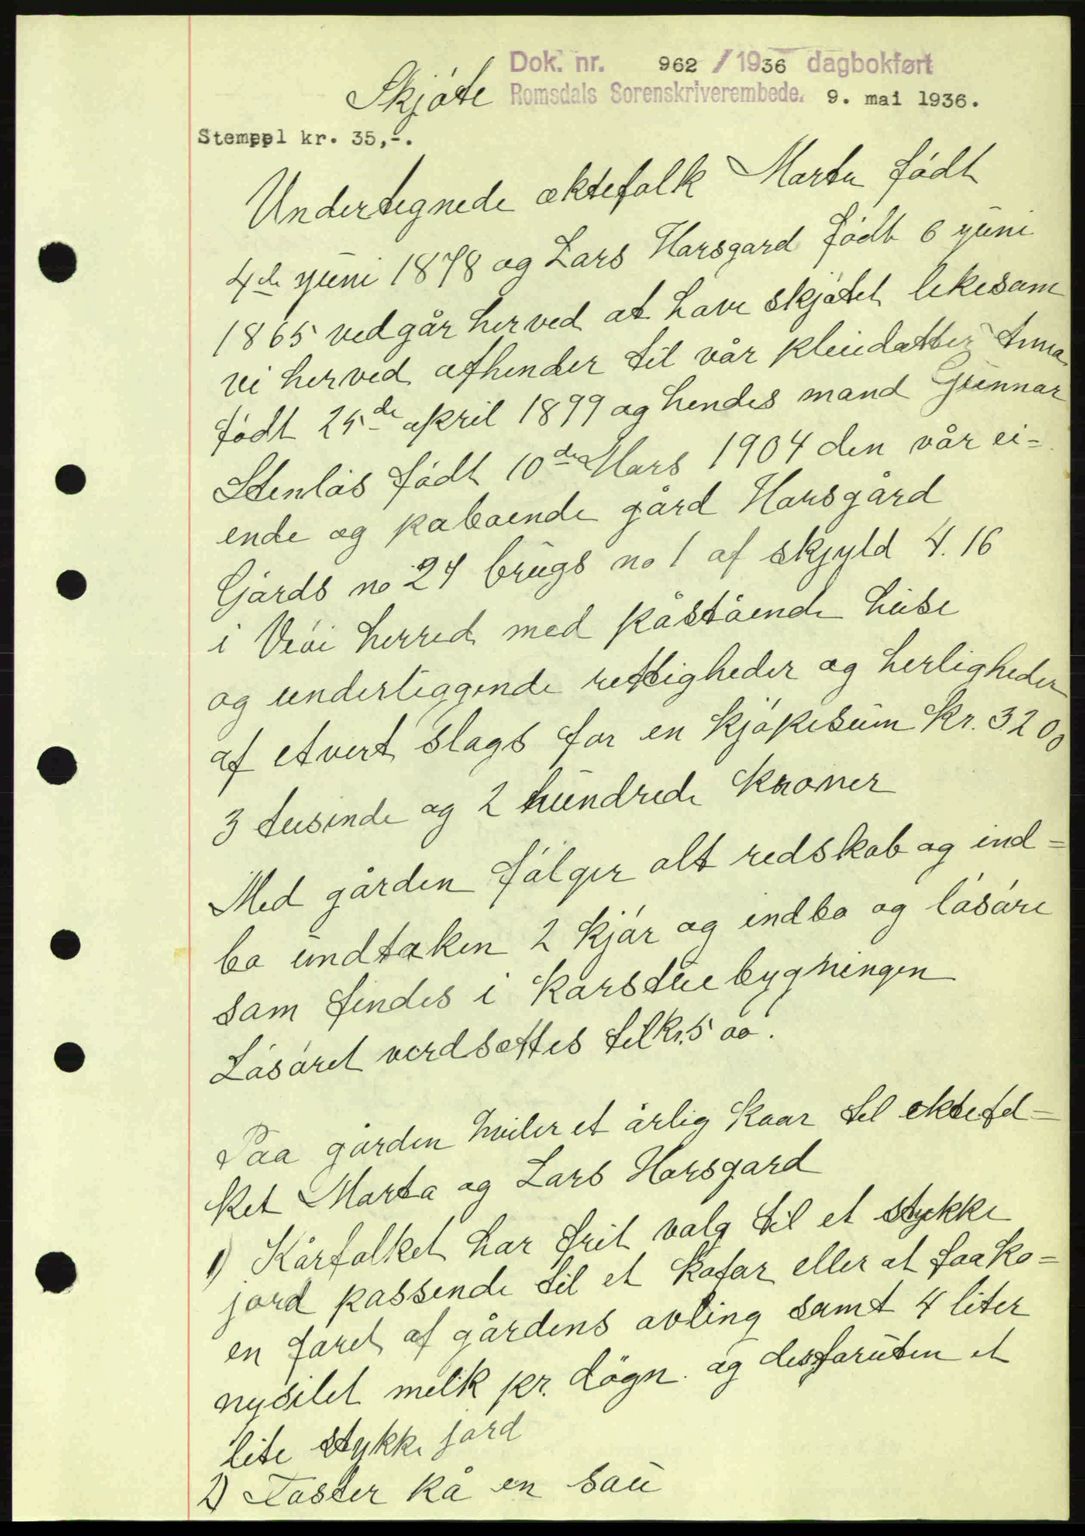 Dok. nr. 962 / 1936 dagbokført
Skjøte Romsdals Sorenskriverembede. 9. mai 1936.
Stempel kr. 35,-.
Undertegnede æktefolk Marta født
4de juni 1878 og Lars Horsgard født 6 juni
1865 vedgår herved at have skjøtet likesom
vi herved afhender til vår pleiedatter Anna
født 25de april 1899 og hendes mand Gunnar
Stenløs født 10de Mars 1904 den vår ei=
ende og paboende gård Horsgård
Gårds no 24 brugs no 1 af skjyld 4.16
i Veøi herred med påstående huse
og underliggende rettigheder og herligheder
af etvert slags for en kjøpesum kr. 3200
3 tusinde og 2 hundrede kroner
Med gården følger alt redskab og ind=
bo undtaken 2 kjør og indbo og løsøre
som findes i korstuebygningen
Løsøret verdsættes til kr. 500.
Paa gården hviler et årlig kaar til ektefol=
ket Marta og Lars Horsgard
1) Kårfolket har frit valg til et stykke
jord passende til et kofor eller at faa ko=
en foret af gårdens avling samt 4 liter
nysilet melk pr. døgn og desforuten et
lite stykke jord
2) Foster på en sau